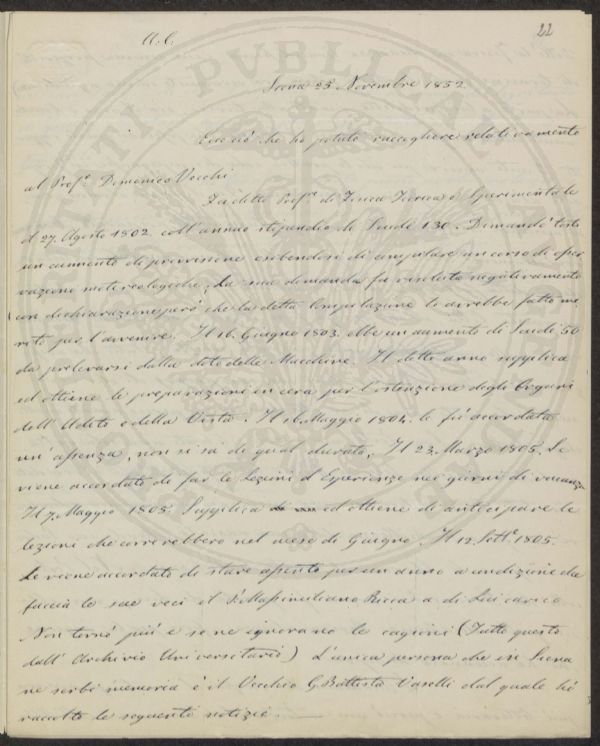 22
A. C.
Siena 25 Novembre 1852
Ecco ciò che ho potuto raccogliere relativamente
al Prof.e Domenico Vecchi
Fu eletto Prof.re di Fisica Teorica e Sperimentale
il 27. Agosto 1802. coll'annuo stipendio di Scudi 130. Dimandò tosto
un aumento di provvisione esibendosi di compilare un corso di osser
vazione metereologiche. La sua domanda fu risoluta negativamente
con dichiarazione però che la detta Compilazione lo avrebbe fatto me
rito per l'avvenire. Il 16. Giugno 1803. ebbe un aumento di Scudi 50
da prelevarsi dalla dote delle Macchine. Il detto anno supplica
ed ottiene le preparazioni in cera per l'ostenzione degli Organi
dell'Udito e della Vista. Il 16. Maggio 1804. le fu accordata
un'assenza, non si sa di qual durata. Il 23. Marzo 1805. Le
viene accordato di far le Lezioni d'Esperienze nei giorni di vacanza
Il 7. Maggio 1805. Supplica ed ottiene di anticipare le
lezioni che correrebbero nel mese di Giugno. Il 12. Sett.e 1805.
Le viene accordato di stare assente per un anno a condizione che
faccia le sue veci il P. Massimiliano Ricca a di Lui carico
Non tornò più e se ne ignorano le cagioni (Tutto questo
dall'Archivio Universitario) L'unica persona che in Siena
ne serbi memoria è il Vecchio G. Battista Vaselli dal quale hò
raccolto le seguenti notizie.